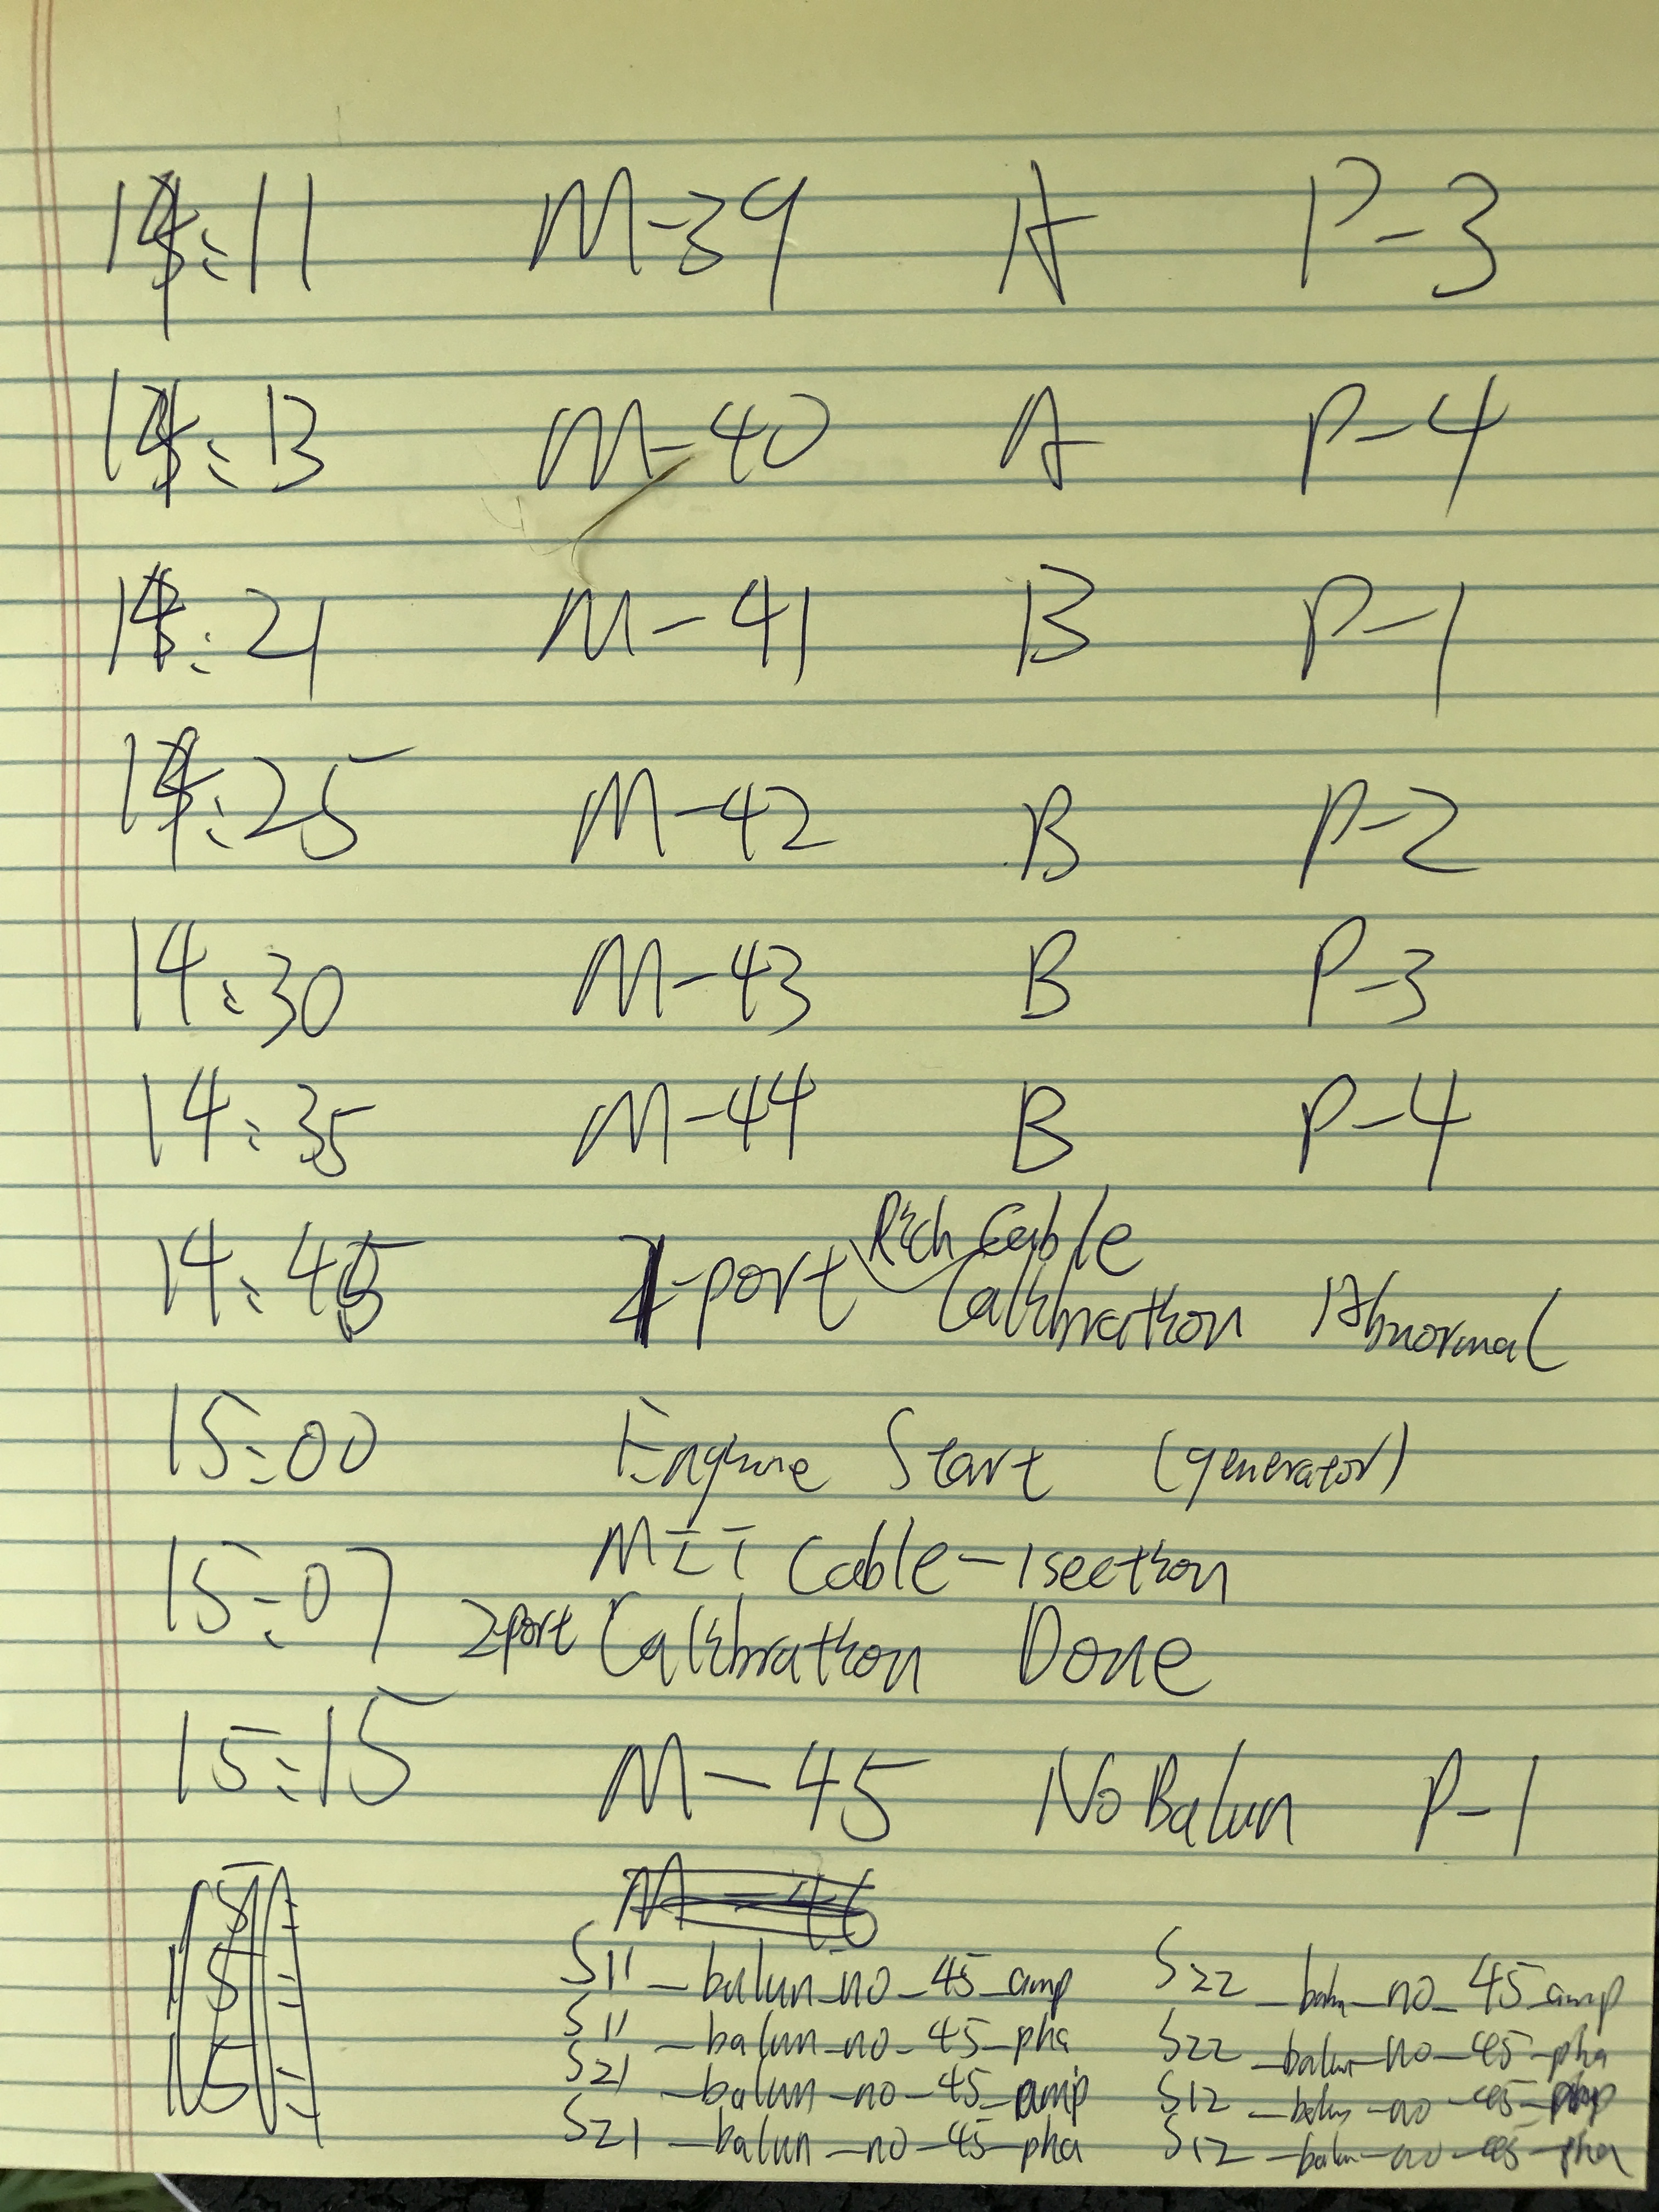 14:11 M-39 A P-3
14:13 M-40 A P-4
14:21 M-41 B P-1
14:25 M-42 B P-2
14:30 M-43 B P-3
14:35 M-44 B P-4
Rich Cable
14:45 1-port Calibration Abnormal
15:00 Engine Start (generator)
MIT Cable-1section
15:07 2port Calibration Done
15:15 M-45 No Balun P-1
M-46
S11_balun_no_45_amp S22_balun_no_45_amp
S11_balun_no_45_pha S22_balun_no_45_pha
S21_balun_no_45_amp S12_balun_no_45_amp
S21_balun_no_45_pha S12_balun_no_45_pha